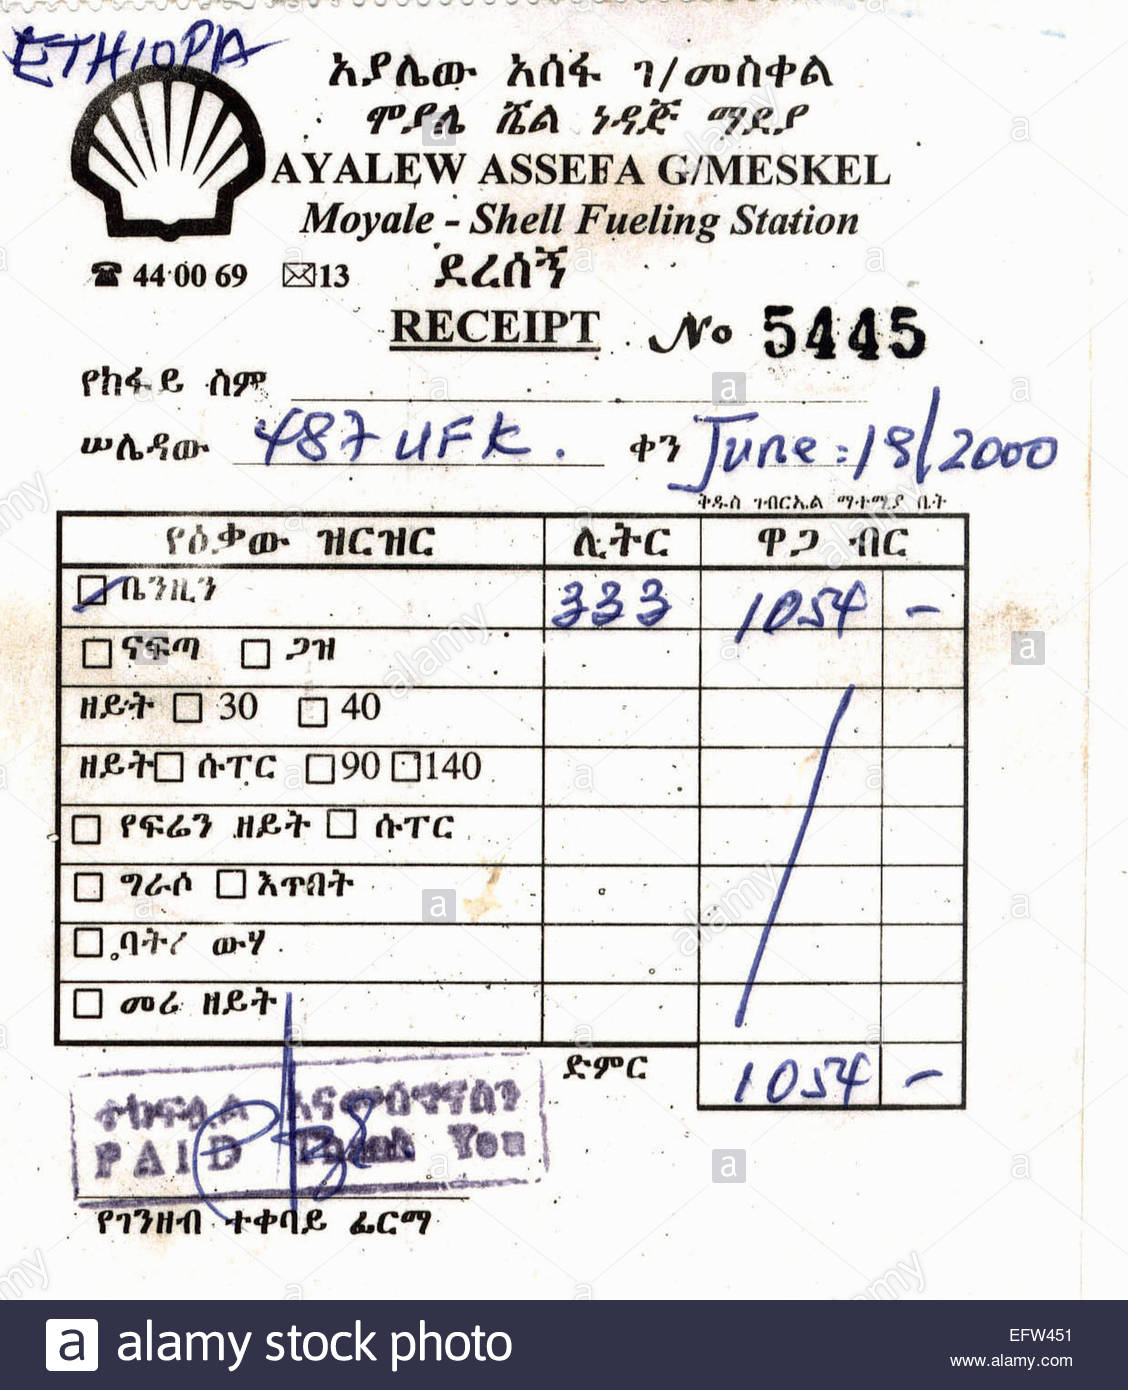 ETHIOPIA
አያሌው አሰፋ ገ/መስቀል
ሞያሌ ሼል ነዳጅ ማደያ
AYALEW ASSEFA G/MESKEL
Moyale - Shell Fueling Station
☎ 44 00 69 ✉ 13 ደረሰኝ
RECEIPT No 5445
የከፋይ ስም
ሠሌዳው 487 UFK. ቀን June: 18/2000
ቅዱስ ገብርኤል ማተሚያ ቤት
የዕቃው ዝርዝር ሊትር ዋጋ ብር
ቤንዚን 333 1054 -
ናፍጣ ጋዝ
ዘይት 30 40
ዘይት ሱፐር 90 140
የፍሬን ዘይት ሱፐር
ግራሶ እጥበት
ባትሪ ውሃ
መሪ ዘይት
ድምር 1054 -
ተከፍሏል እናመሰግናለን
PAID Thank You
የገንዘብ ተቀባይ ፊርማ
a alamy stock photo
EFW451
www.alamy.com